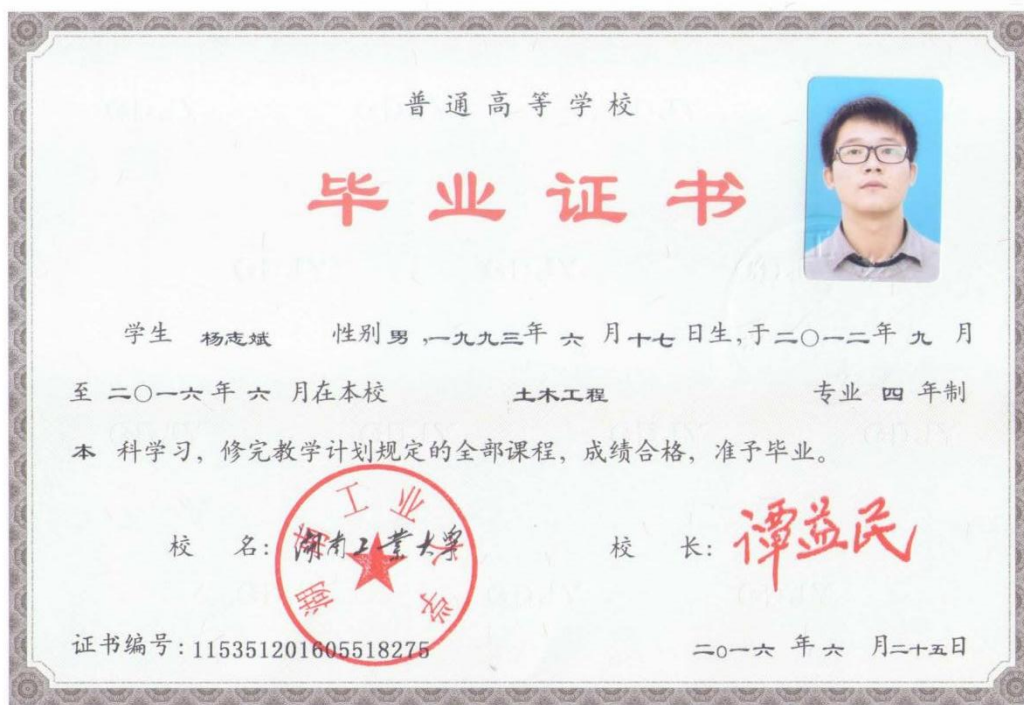 普通高等学校
毕业证书
学生 杨志斌 性别 男 ,一九九三年 六 月 十七 日生,于二〇一二年 九 月
至 二〇一六 年 六 月在本校 土木工程 专业 四 年制
本 科学习，修完教学计划规定的全部课程，成绩合格，准予毕业。
湖南工业大学
校 名：湖南工業大學 校 长：谭益民
证书编号：115351201605518275 二〇一六 年 六 月二十五日